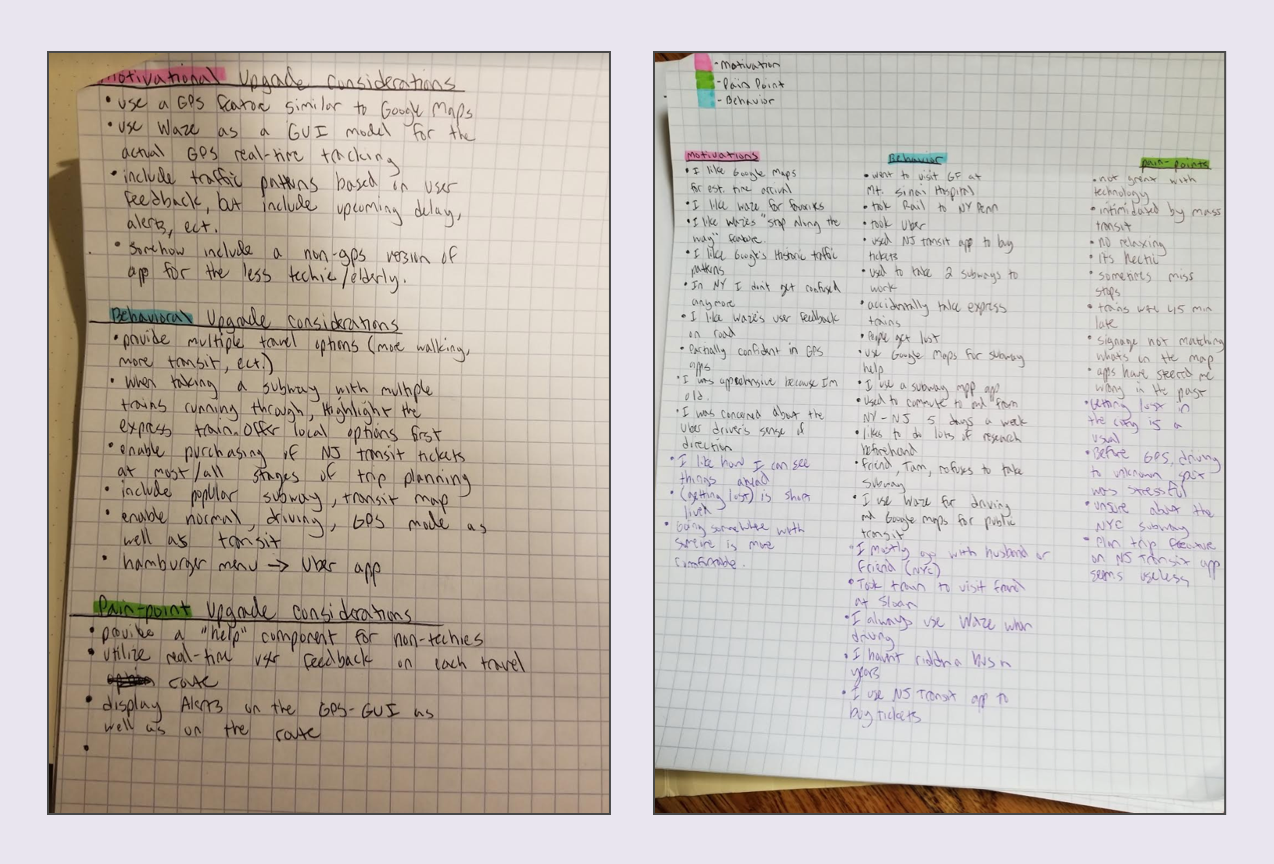 Motivational Upgrade Considerations
• use a GPS feature similar to Google Maps
• use Waze as a GUI model for the
actual GPS real-time tracking
• include traffic patterns based on user
feedback, but include upcoming delay,
alerts, ect.
• somehow include a non-gps version of
app for the less techie/elderly.
Behavioral Upgrade considerations
• provide multiple travel options (more walking,
more transit, ect.)
• when taking a subway with multiple
trains running through, Highlight the
express train. Offer local options first
• enable purchasing of NJ transit tickets
at most/all stages of trip planning
• include popular subway, transit map
• enable normal, driving, GPS mode as
well as transit
• hamburger menu → Uber app
Pain-point Upgrade considerations
• provide a "help" component for non-techies
• utilize real-time user feedback on each travel
route
• display Alerts on the GPS-GUI as
well as on the route
•
- Motivation
- Pain Point
- Behavior
Motivations
• I like Google Maps
for est. time arrival
• I like waze for favorites
• I like Wazes "stop along the
way" feature.
• I like Google's Historic traffic
patterns
• In NY I don't get confused
anymore
• I like Waze's user feedback
on road
• Partially confident in GPS
apps
• I was apprehensive because I'm
old.
• I was concerned about the
Uber driver's sense of
direction
• I like how I can see
things ahead
• (getting lost) is short
lived
• being somewhere with
someone is more
comfortable.
Behavior
• went to visit GF at
Mt. Sinai Hospital
• took Rail to NY Penn
• took Uber
• used NJ transit app to buy
tickets
• used to take 2 subways to
work
• accidentally take express
trains
• People get lost
• use Google Maps for subway
help
• I use a subway app
• used to commute to and from
NY-NJ 5 days a week
• likes to do lots of research
beforehand
• Friend, Tam, refuses to take
subway
• I use Waze for driving
and Google maps for public
transit
• I mostly go with husband or
friend (NYC)
• Took train to visit friend
at Sloan
• I always use Waze when
driving
• I havnt riddin a bus in
years
• I use NJ Transit app to
buy tickets
pain-points
• not great with
technology
• intimidated by mass
transit
• no relaxing
• its hectic
• sometimes miss
stops
• trains were 45 min
late
• signage not matching
whats on the map
• apps have steered me
wrong in the past
• Getting lost in
the city is a
usual
• Before GPS, driving
to unknown spot
was stressful
• unsure about the
NYC subway
• Plan trip feature
on NJ Transit app
seems useless